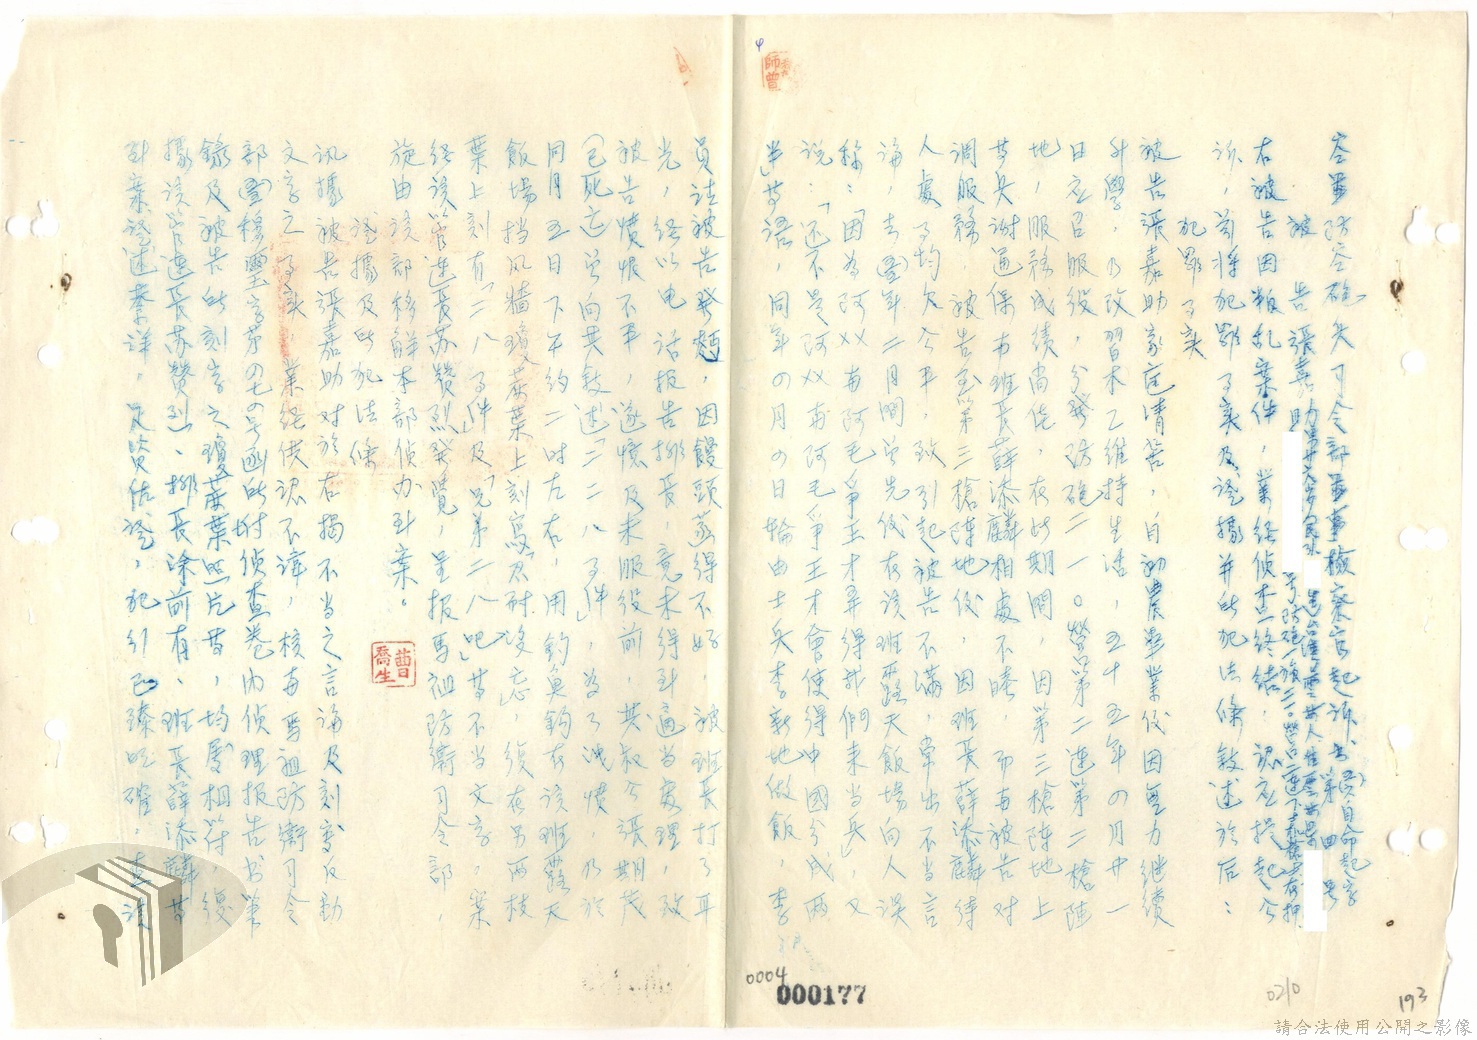 空軍防空砲兵司令部軍事檢察官起訴書
被告張嘉助
右被告因叛亂案件，業經偵查終結，認應提起公
訴，茲將犯罪事實及證據并所犯法條敘述於后：
犯罪事實
被告張嘉助家庭清苦，自初農畢業後因無力繼續
升學，乃改習木工維持生活，五十五年四月廿一
日應召服役，分發防砲二一○營第二連第二槍陣
地，服務成績尚佳，在此期間，因第三槍陣地上
等兵謝通保與班長薛添麟相處不睦，而與被告對
調服務，被告至第三槍陣地後，因班長薛添麟待
人處事均欠公平，致引起被告不滿，常出不當言
論，去(56)年二月間曾先後在該班露天飯場向人誤
稱：「因為阿××與阿毛爭王才弄得我們來當兵」又
說：「還不是阿××與阿毛爭王才會使得中國分成兩
半」等語，同年四月四日輪由士兵李新地做飯，李
員請被告發麵，因饅頭蒸得不好，被班長打了耳
光，經以电話报告排長，竟未得到適當處理，致
被告憤恨不平，遂憶及未服役前，其叔公張期茂
(已死亡)曾向其敘述「二二八事件」，為了洩憤，乃於
同月五日下午約二時左右，用釣魚鉤在該班露天
飯場挡风墙瓊麻葉上刻寫「不能忘」，後在另兩枝
葉上刻有「二二八事件」及「兄弟二二八吧」等不当文字，案
經該管連長苏赞烈發覺，呈报馬祖防衛司令部，
旋由該部移解本部侦办到案。
證據及所犯法條
訊據被告張嘉助對於右揭不当之言論及刻寫反動
文字之事實，業經供認不諱，核与馬祖防衛司令
部(56)穆璽字第四七四号函所附偵查卷内偵理报告书筆
錄及被告所刻字之瓊麻葉照片等，均屬相符，復
據該管連長苏赞烈、排長涂前有、班長薛添麟等
到案證述綦詳，足資佐證，犯行已臻明確，查該
曹喬生
0004
000177
0210
193
請合法使用公開之影像